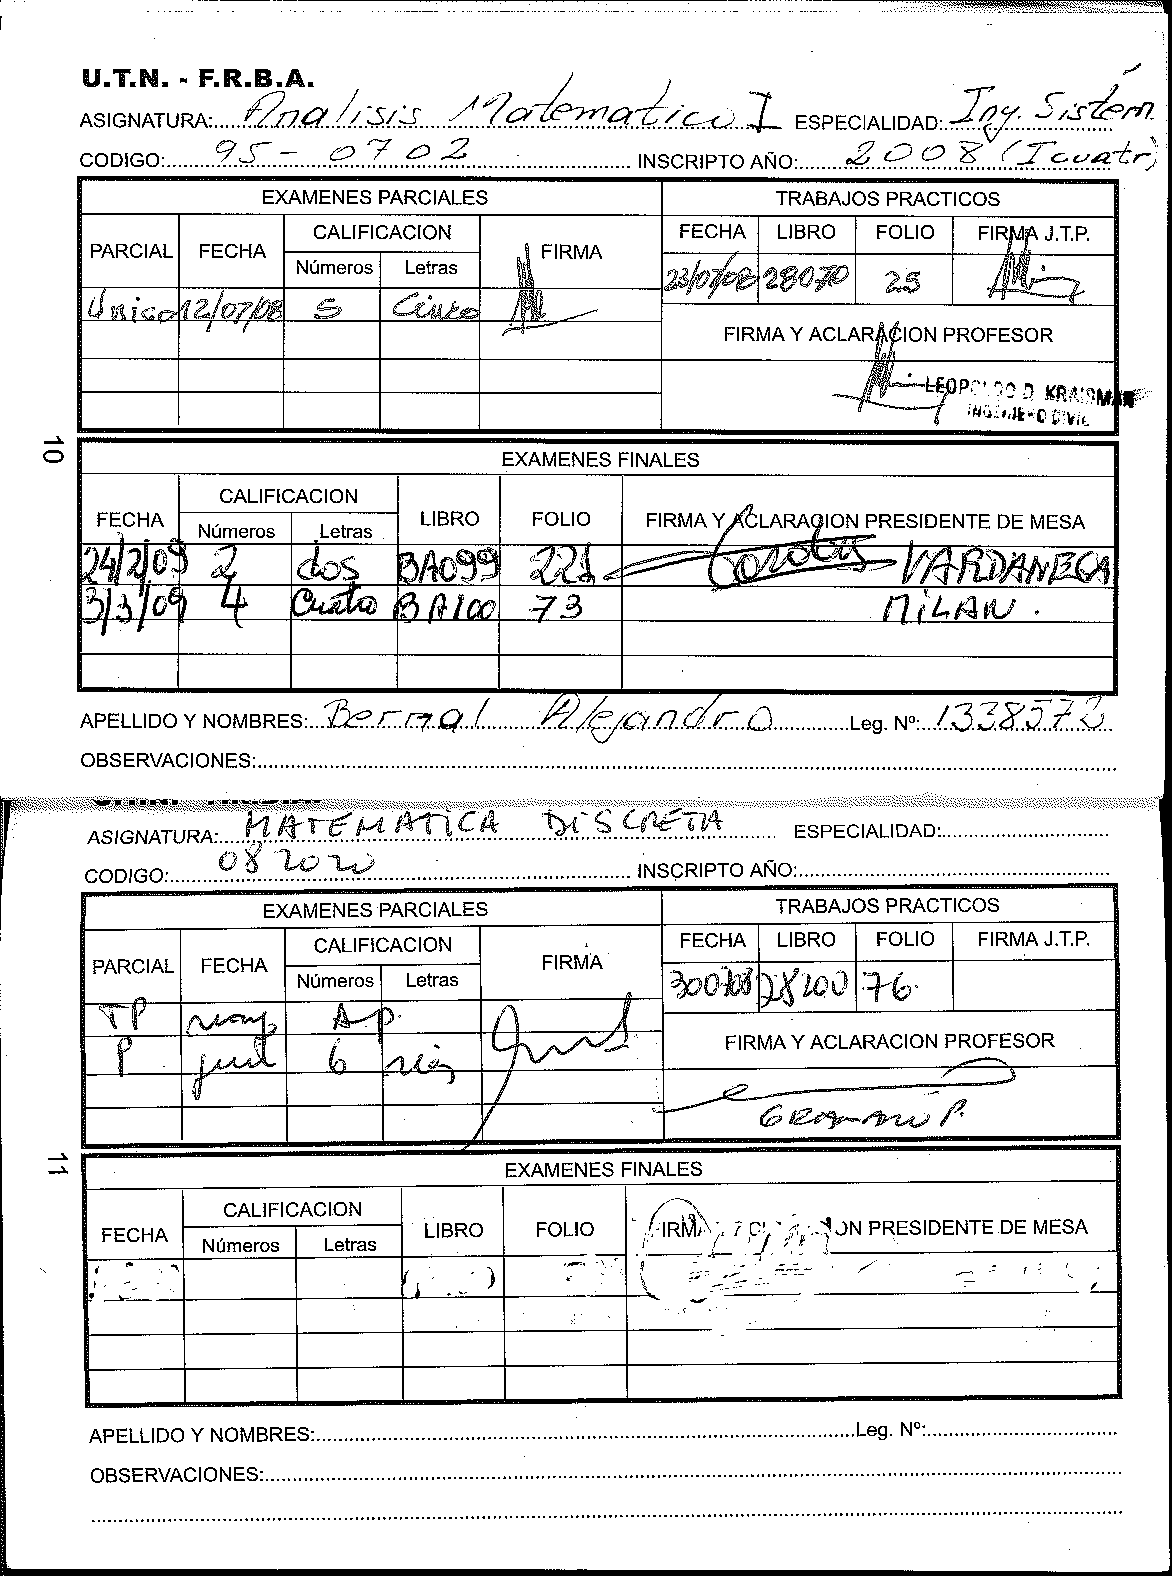 U.T.N. - F.R.B.A.
ASIGNATURA: Analisis Matematico I ESPECIALIDAD: Ing. Sistem.
CODIGO: 95-0702 INSCRIPTO AÑO: 2008 (I cuatr)
EXAMENES PARCIALES TRABAJOS PRACTICOS
PARCIAL FECHA CALIFICACION FIRMA FECHA LIBRO FOLIO FIRMA J.T.P.
Números Letras
23/07/08 28070 25
Unico 12/07/08 5 Cinco
FIRMA Y ACLARACION PROFESOR
LEOPOLDO D. KRAISMAN
INGENIERO CIVIL
10
EXAMENES FINALES
FECHA CALIFICACION LIBRO FOLIO FIRMA Y ACLARACION PRESIDENTE DE MESA
Números Letras
24/2/09 2 dos BA099 221 VARDANEGA
3/3/09 4 Cuatro BA100 73 MILAN.
APELLIDO Y NOMBRES: Bernal Alejandro Leg. Nº: 1338572
OBSERVACIONES:
ASIGNATURA: MATEMATICA DISCRETA ESPECIALIDAD:
CODIGO: 082020 INSCRIPTO AÑO:
EXAMENES PARCIALES TRABAJOS PRACTICOS
PARCIAL FECHA CALIFICACION FIRMA FECHA LIBRO FOLIO FIRMA J.T.P.
Números Letras
300708 28200 76
TP Ap.
P 6 seis
FIRMA Y ACLARACION PROFESOR
11
EXAMENES FINALES
FECHA CALIFICACION LIBRO FOLIO PRESIDENTE DE MESA
Números Letras
APELLIDO Y NOMBRES: Leg. Nº:
OBSERVACIONES: